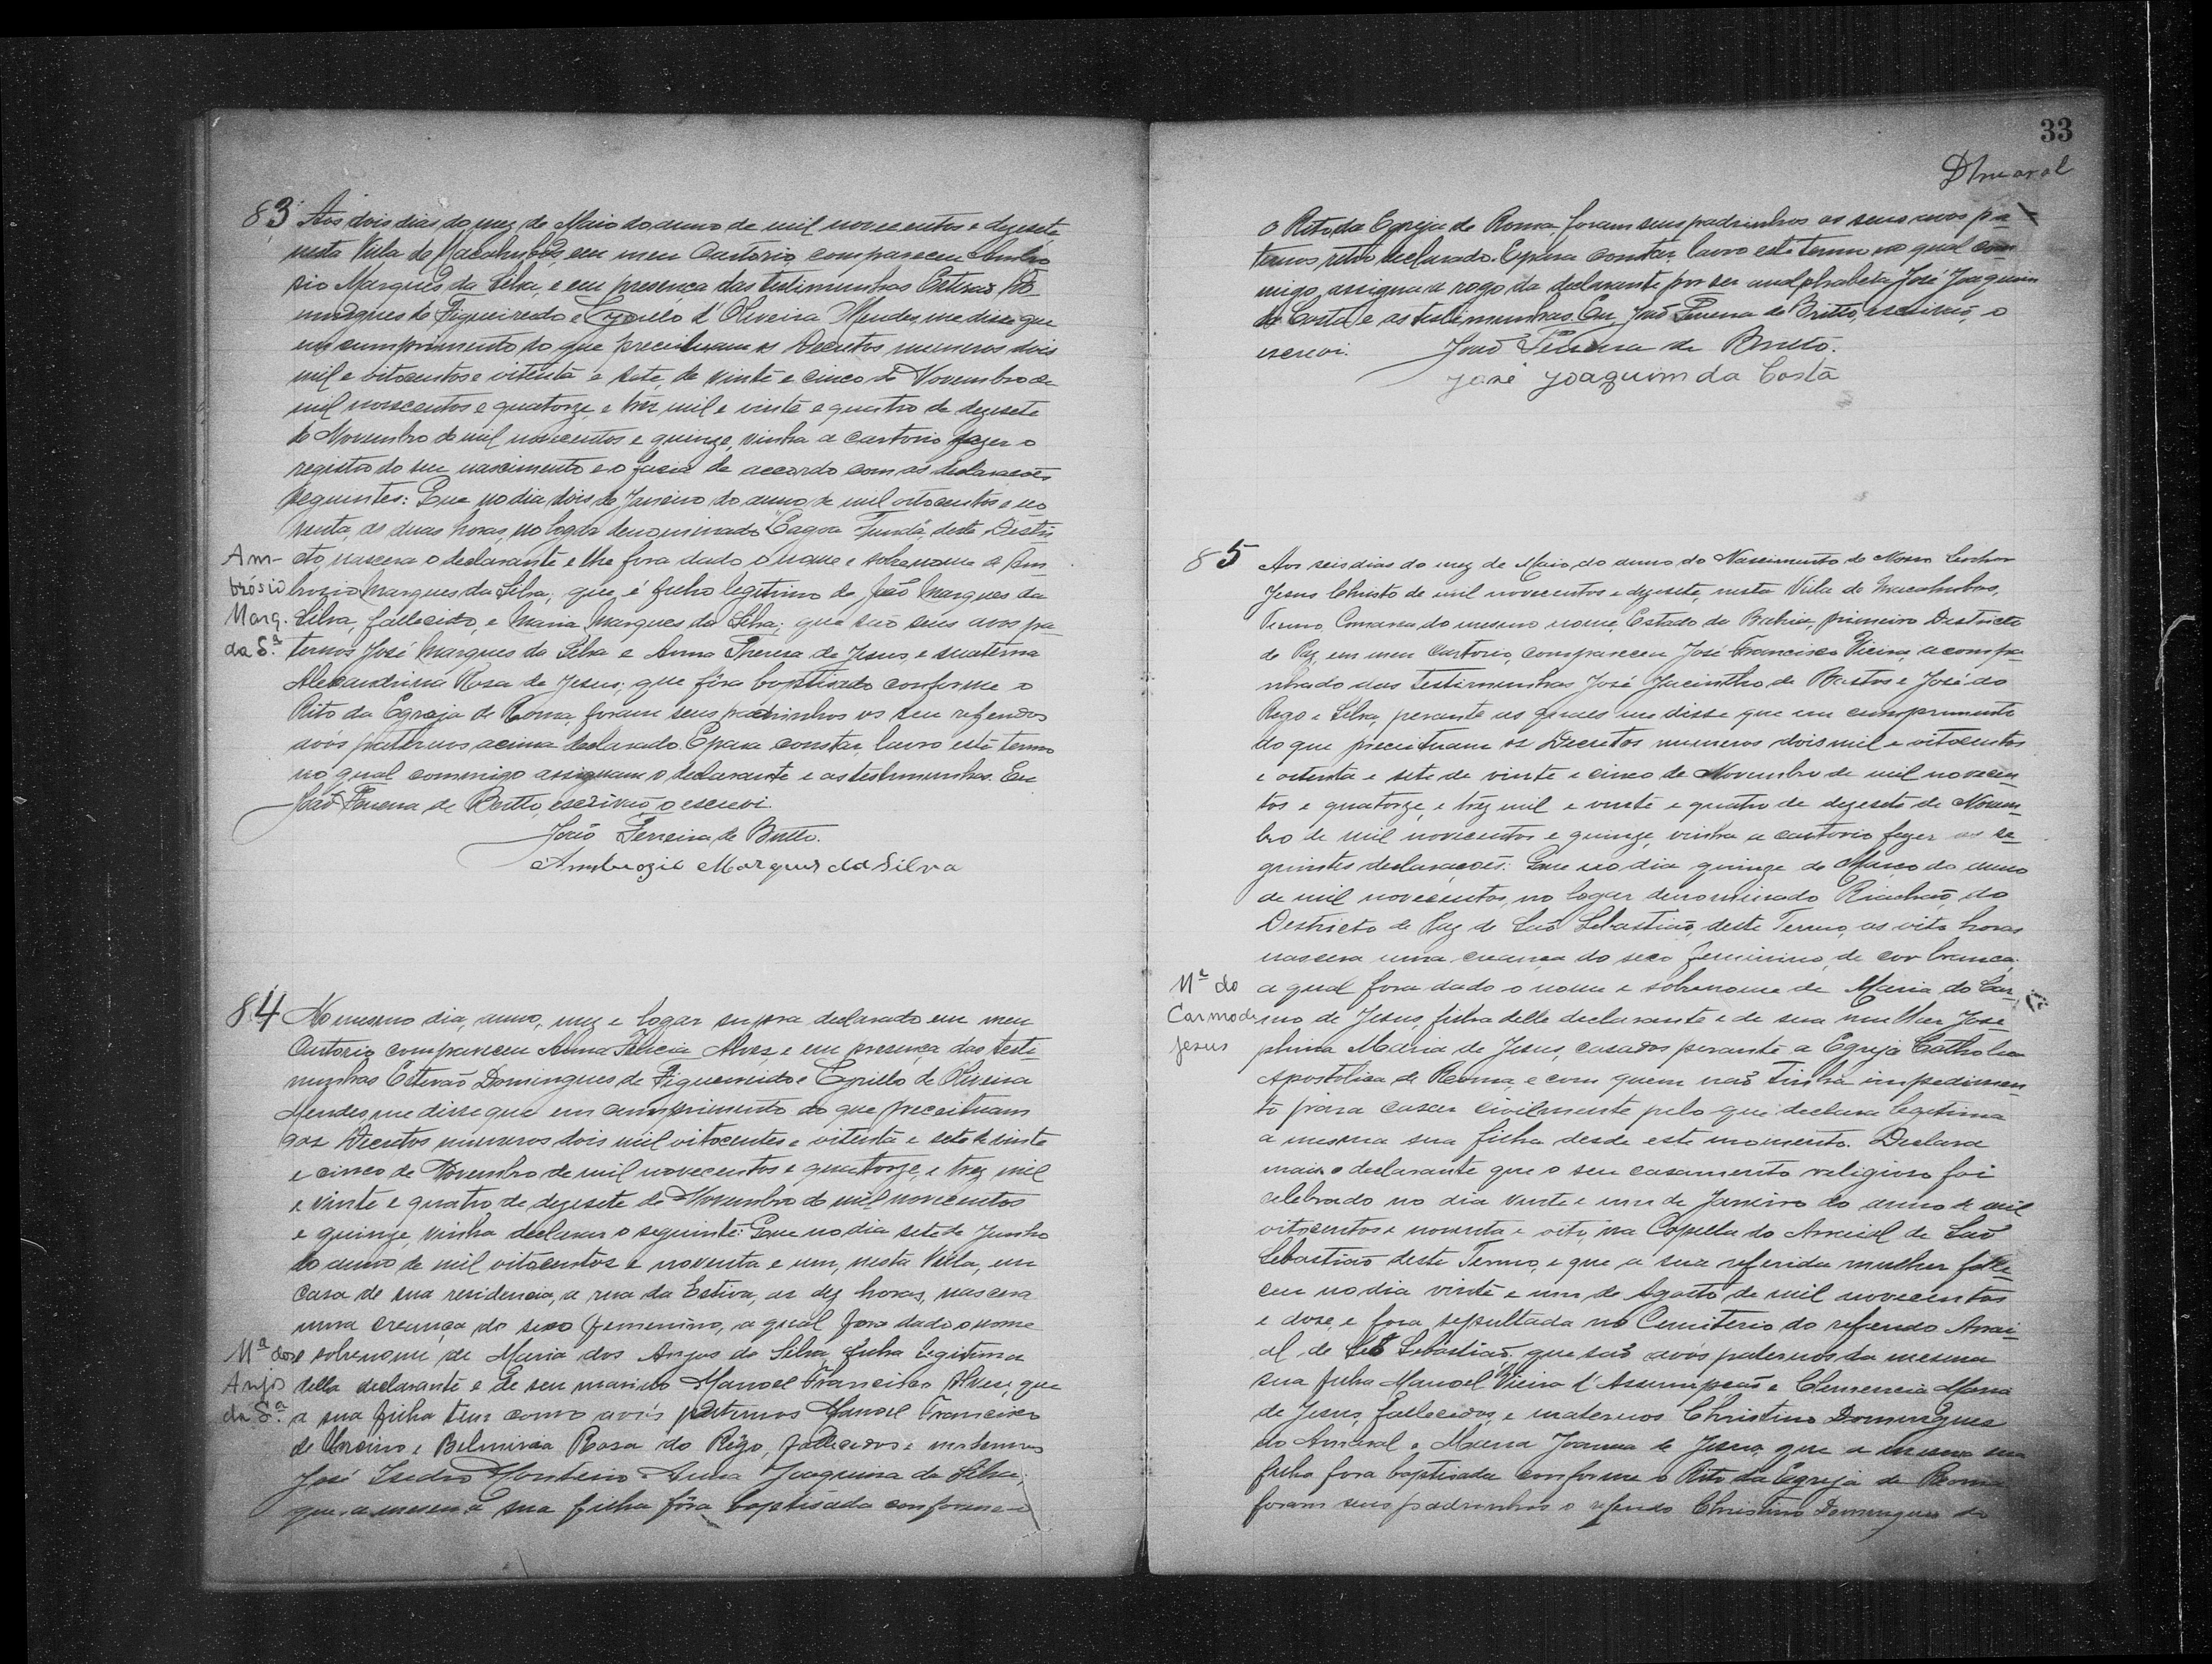 83 Aos dois dias do mez de Maio do anno de mil novecentos e dezesete
nesta Villa de Macahubas, em meu Cartorio, compareceu Ambro
sio Marques da Silva, e em presença das testimunhas Estevão Do-
mingues de Figueiredo e Cyrillo d'Oliveira Mendes, me disse que
em cumprimento do que preceituam os Decretos numeros dois
mil e oitocentos e oitenta e sete, de vinte e cinco de Novembro de
mil novecentos e quatorze, e trez mil e vinte e quatro de dezesete
de Novembro de mil novecentos e quinze, vinha a cartorio fazer o
registro do seu nascimento e o fazia de accordo com as declarações
seguintes: Que no dia dois de Janeiro do anno de mil oitocentos e no
venta, as duas horas, no logar denominado "Lagoa Funda", deste Distri
Am- cto nascera o declarante e lhe fora dado o nome e sobrenome de Am
brósio brozio Marques da Silva, que é filho legitimo de João Marques da
Marq. Silva, fallecido, e Maria Marques da Silva; que são seus avos pa
da S.ª ternos José Marques da Silva e Anna Thereza de Jesus, e materna
Alexandrina Rosa de Jesus; que fôra baptisado conforme o
Rito da Egreja de Roma, foram seus padrinhos os seu referidos
avós paternos acima declarado. E para constar, lavro este termo
no qual commigo assignam o declarante e as testimunhas. Eu
João Ferreira de Britto, escrivão o escrevi.
João Ferreira de Britto.
Ambrozio Marques da Silva
84 No mesmo dia, anno, mez e logar supra declarado em meu
Cartorio compareceu Anna Alves, e em presença das testi
munhas Estevão Domingues de Figueiredo e Cyrillo de Oliveira
Mendes, me disse que em cumprimento do que preceituam
os Decretos numeros dois mil oitocentos e oitenta e sete de vinte
e cinco de Novembro de mil novecentos e quatorze, e trez mil
e vinte e quatro de dezesete de Novembro de mil novecentos
e quinze, vinha declarar o seguinte: Que no dia sete de Junho
do anno de mil oitocentos e noventa e um, nesta Villa, em
casa de sua residencia, a rua da Estiva, as dez horas, nascera
uma creança do sexo femenino, a qual fora dado o nome
Mª dos e sobrenome de Maria dos Anjos da Silva, filha legitima
Anjos della declarante e de seu marido Manoel Francisco Alves; que
da S.ª a sua filha tem como avós paternos Manoel Francisco
de e Belmira Rosa do Rêgo, fallecidos e maternos
José Isidro Monteiro Anna Joaquina da Silva;
que a mesma sua filha fôra baptisada conforme
33
DAmaral
o Rito da Egreja de Roma, foram seus padrinhos os seus avos pa
ternos retro declarado. E para constar, lavro este termo no qual com
migo assigna a rogo da declarante por ser analphabeta José Joaquim
da Costa e as testimunhas. Eu João Ferreira de Britto, escrivão, o
escrevi. João Ferreira de Britto.
José Joaquim da Costa
85 Aos seis dias do mez de Maio, do anno do Nascimento de Nosso Senhor
Jesus Christo de mil novecentos e dezesete, nesta Villa de Macahubas,
Termo, Comarca do mesmo nome, Estado da Bahia, primeiro Destricto
de Paz, em meu cartorio, compareceu José Francisco Vieira, acompa
nhado das testimunhas José Jacintho de Bastos e José do
Rego e Silva, perante as quaes me disse que em cumprimento
do que preceituam os Decretos numeros dois mil e oitocentos
e oitenta e sete de vinte e cinco de Novembro de mil novecen
tos e quatorze, e trez mil e vinte e quatro de dezesete de Novem
bro de mil novecentos e quinze, vinha a cartorio fazer as se-
guintes declarações: Que no dia quinze de Março do anno
de mil novecentos, no logar denominado Riachão, do
Destricto de Paz de São Sebastião, deste Termo, as oito horas
nascera uma creança do sexo femenino, de cor branca;
Mª do a qual fora dado o nome e sobrenome de Maria do Car
Carmo de mo de Jesus, filha delle declarante e de sua mulher José
Jesus phina Maria de Jesus, casados perante a Egreja Catholica
Apostolica de Roma, e com quem não tinha impedimen
to para casar civilmente pelo que declara legitima
a mesma sua filha desde este momento. Declara
mais o declarante que o seu casamento religioso foi
celebrado no dia vinte e um de Janeiro do anno de mil
oitocentos e noventa e oito, na Capella do Arraial de São
Sebastião deste Termo, e que a sua referida mulher falle
ceu no dia vinte e um de Agosto de mil novecentos
e dose, e fora sepultada no Cemiterio do referido Arrai-
al de São Sebastião, que são avós paternos da mesma
sua filha Manoel Vieira d'Assumpção e Clemencia Maria
de Jesus, fallecidos, e maternos Christino Domingues
do Amaral e Maria Joanna de Jesus, que a mesma sua
filha fora baptisada conforme o Rito da Egreja de Roma
foram seus padrinhos o referido Christino Domingues do